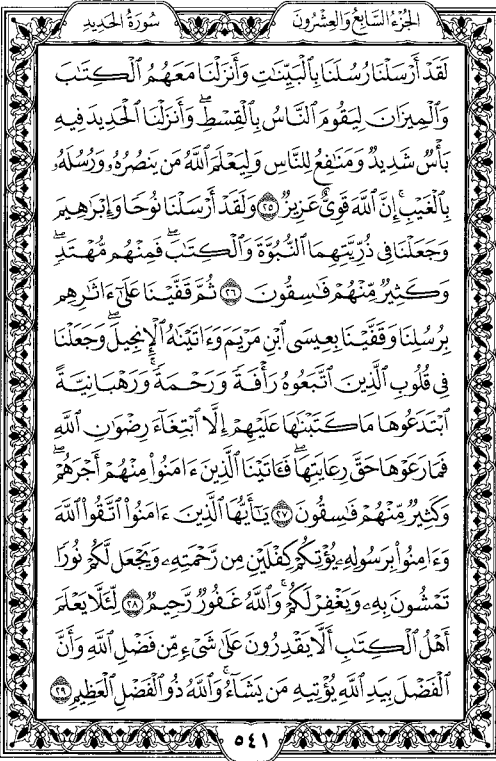 الجزء السابع والعشرون
سورة الحديد
لَقَدۡ أَرۡسَلۡنَا رُسُلَنَا بِٱلۡبَيِّنَٰتِ وَأَنزَلۡنَا مَعَهُمُ ٱلۡكِتَٰبَ
وَٱلۡمِيزَانَ لِيَقُومَ ٱلنَّاسُ بِٱلۡقِسۡطِۖ وَأَنزَلۡنَا ٱلۡحَدِيدَ فِيهِ
بَأۡسٞ شَدِيدٞ وَمَنَٰفِعُ لِلنَّاسِ وَلِيَعۡلَمَ ٱللَّهُ مَن يَنصُرُهُۥ وَرُسُلَهُۥ
بِٱلۡغَيۡبِۚ إِنَّ ٱللَّهَ قَوِيٌّ عَزِيزٞ ٢٥ وَلَقَدۡ أَرۡسَلۡنَا نُوحٗا وَإِبۡرَٰهِيمَ
وَجَعَلۡنَا فِي ذُرِّيَّتِهِمَا ٱلنُّبُوَّةَ وَٱلۡكِتَٰبَۖ فَمِنۡهُم مُّهۡتَدٖۖ
وَكَثِيرٞ مِّنۡهُمۡ فَٰسِقُونَ ٢٦ ثُمَّ قَفَّيۡنَا عَلَىٰٓ ءَاثَٰرِهِم
بِرُسُلِنَا وَقَفَّيۡنَا بِعِيسَى ٱبۡنِ مَرۡيَمَ وَءَاتَيۡنَٰهُ ٱلۡإِنجِيلَۖ وَجَعَلۡنَا
فِي قُلُوبِ ٱلَّذِينَ ٱتَّبَعُوهُ رَأۡفَةٗ وَرَحۡمَةٗۚ وَرَهۡبَانِيَّةً
ٱبۡتَدَعُوهَا مَا كَتَبۡنَٰهَا عَلَيۡهِمۡ إِلَّا ٱبۡتِغَآءَ رِضۡوَٰنِ ٱللَّهِ
فَمَا رَعَوۡهَا حَقَّ رِعَايَتِهَاۖ فَـَٔاتَيۡنَا ٱلَّذِينَ ءَامَنُواْ مِنۡهُمۡ أَجۡرَهُمۡۖ
وَكَثِيرٞ مِّنۡهُمۡ فَٰسِقُونَ ٢٧ يَٰٓأَيُّهَا ٱلَّذِينَ ءَامَنُواْ ٱتَّقُواْ ٱللَّهَ
وَءَامِنُواْ بِرَسُولِهِۦ يُؤۡتِكُمۡ كِفۡلَيۡنِ مِن رَّحۡمَتِهِۦ وَيَجۡعَل لَّكُمۡ نُورٗا
تَمۡشُونَ بِهِۦ وَيَغۡفِرۡ لَكُمۡۚ وَٱللَّهُ غَفُورٞ رَّحِيمٞ ٢٨ لِّئَلَّا يَعۡلَمَ
أَهۡلُ ٱلۡكِتَٰبِ أَلَّا يَقۡدِرُونَ عَلَىٰ شَيۡءٖ مِّن فَضۡلِ ٱللَّهِ وَأَنَّ
ٱلۡفَضۡلَ بِيَدِ ٱللَّهِ يُؤۡتِيهِ مَن يَشَآءُۚ وَٱللَّهُ ذُو ٱلۡفَضۡلِ ٱلۡعَظِيمِ ٢٩
٥٤١